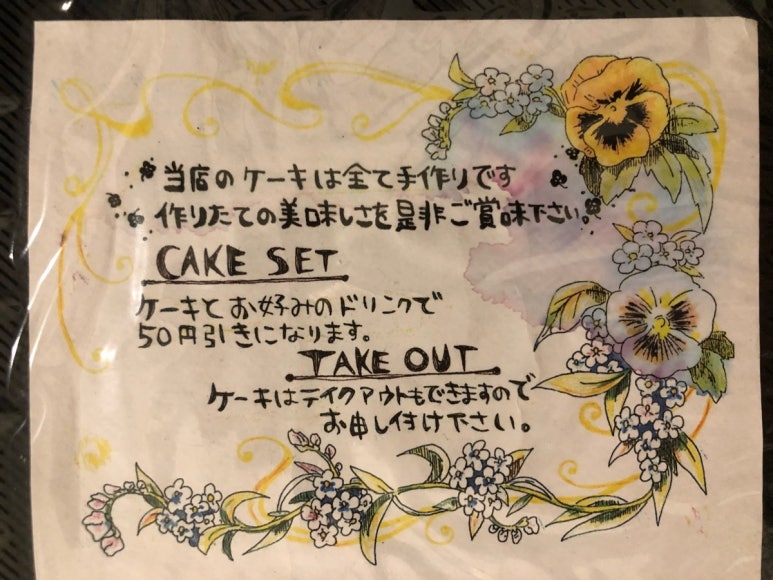 当店のケーキは全て手作りです
作りたての美味しさを是非ご賞味下さい。
CAKE SET
ケーキとお好みのドリンクで
50円引きになります。
TAKE OUT
ケーキはテイクアウトもできますので
お申し付け下さい。